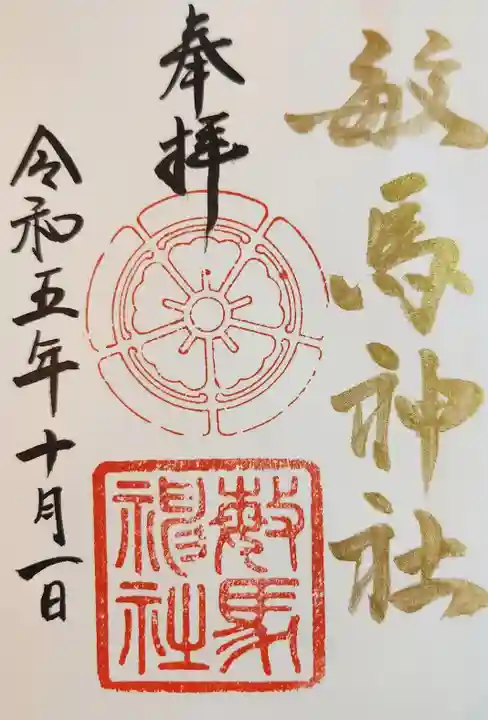 敏馬神社
奉拝
敏馬
神社
令和五年十月一日